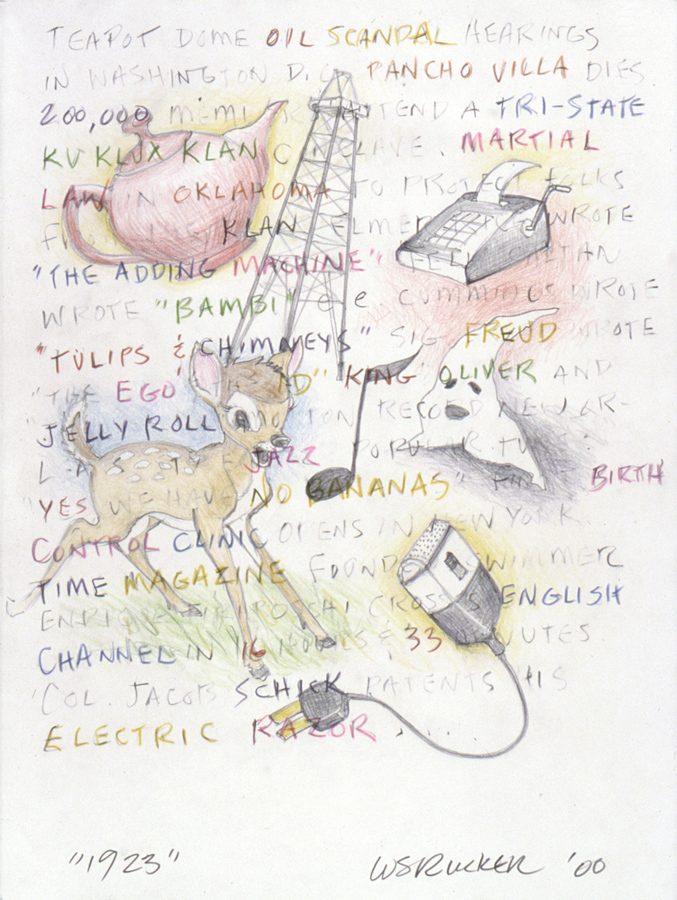 TEAPOT DOME OIL SCANDAL HEARINGS
IN WASHINGTON D.C. PANCHO VILLA DIES
200,000 MEMBERS ATTEND A TRI-STATE
KU KLUX KLAN CONCLAVE. MARTIAL
LAW IN OKLAHOMA TO PROTECT FOLKS
FROM THE KLAN. ELMER RICE WROTE
"THE ADDING MACHINE". FELIX SALTAN
WROTE "BAMBI" e.e. CUMMINGS WROTE
"TULIPS & CHIMNEYS" SIG. FREUD WROTE
"THE EGO & THE ID" "KING" OLIVER AND
"JELLY ROLL" MORTON RECORD NEW OR-
LEANS STYLE JAZZ POPULAR TUNE:
"YES WE HAVE NO BANANAS" FIRST BIRTH
CONTROL CLINIC OPENS IN NEW YORK..
TIME MAGAZINE FOUNDED SWIMMER
ENRIQUE TIRABOSCHI CROSSES ENGLISH
CHANNEL IN 16 HOURS & 33 MINUTES.
COL. JACOB SCHICK PATENTS HIS
ELECTRIC RAZOR .....
"1923" WSRUCKER '00